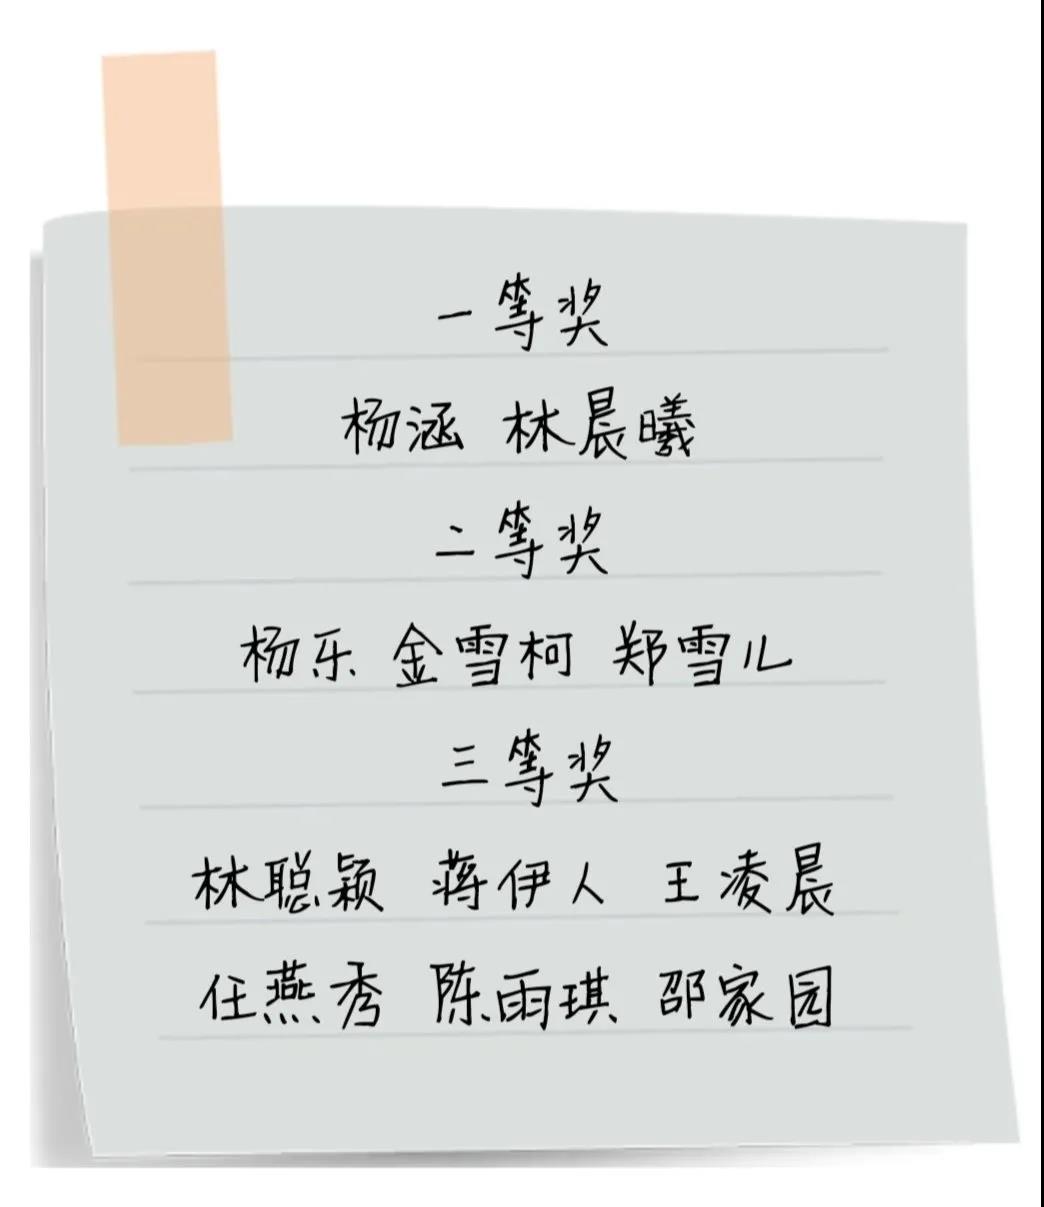 一等奖
杨涵 林晨曦
二等奖
杨乐 金雪柯 郑雪儿
三等奖
林聪颖 蒋伊人 王凌晨
任燕秀 陈雨琪 邵家园